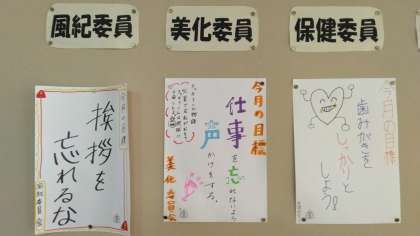 風紀委員
美化委員
保健委員
今月の目標
挨拶を
忘れるな
風紀委員会
今月の目標
仕事
を忘れないよう
声
かけをする。
美化委員会
今月の目標
歯みがきを
しっかりと
しよう!!